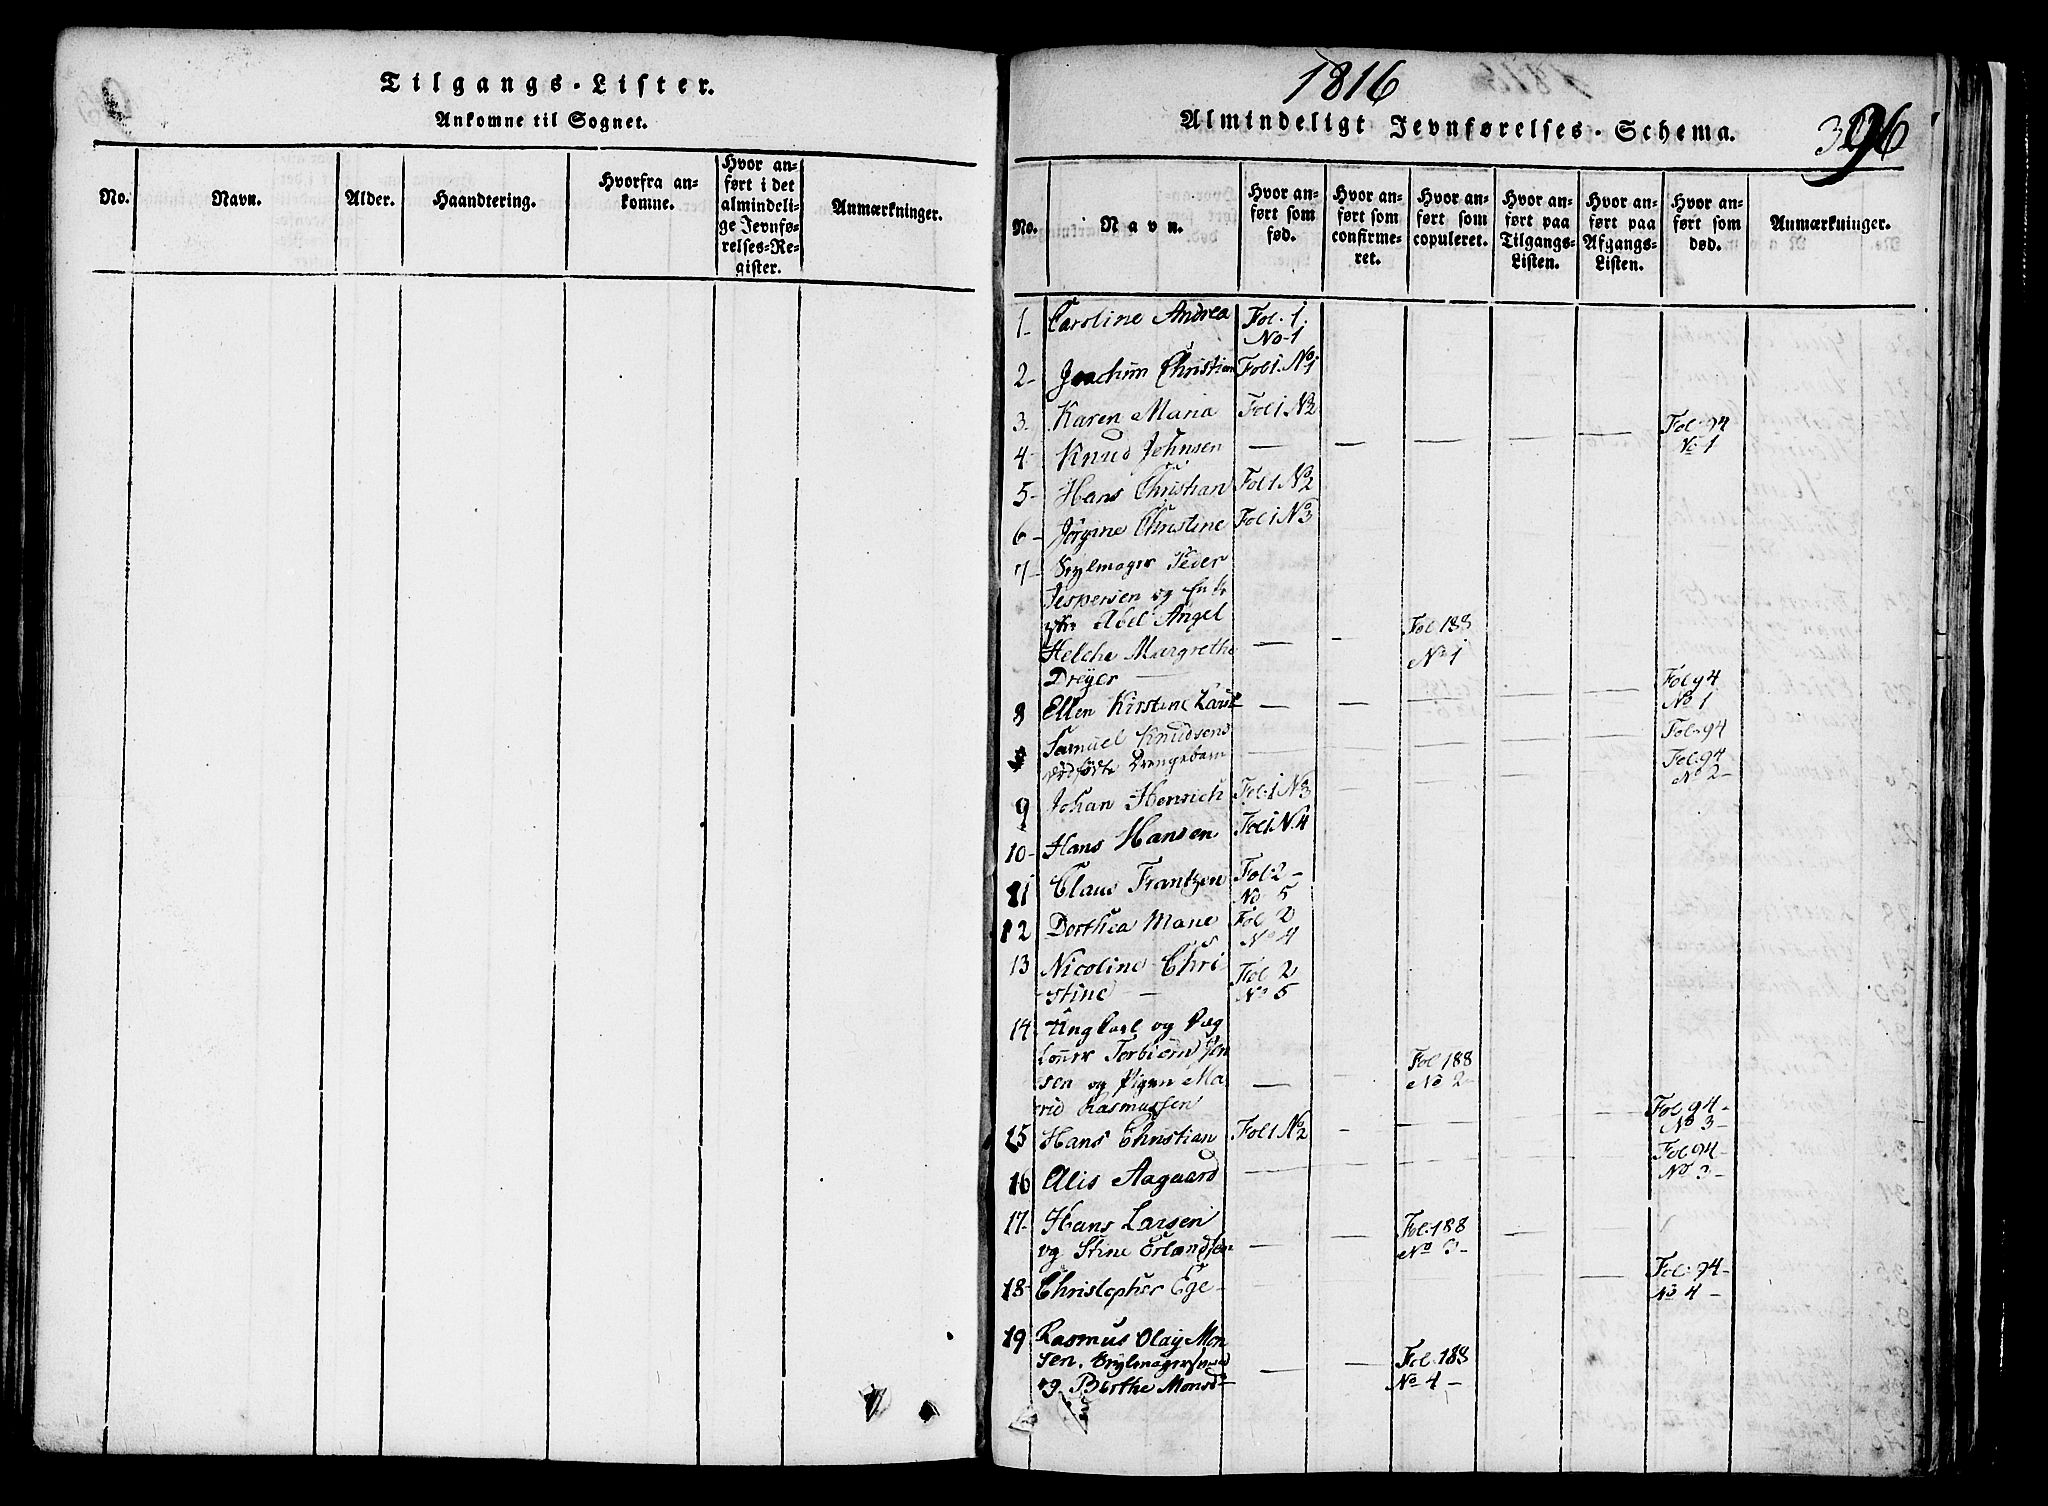 Tilgangs-Lister.
Ankomne til Sognet.
No.
Navn.
Alder.
Haandtering.
Hvorfra an-
komne.
Hvor an-
ført i det
almindeli-
ge Jevnfø-
relses-Re-
gister.
Anmærkninger.
1816
Almindeligt Jevnførelses-Schema.
396
No.
Navn.
Hvor an-
ført som
fød.
Hvor an-
ført som
confirme-
ret.
Hvor an-
ført som
copuleret.
Hvor an-
ført paa
Tilgangs-
Listen.
Hvor an-
ført paa
Afgangs-
Listen.
Hvor an-
ført som
død.
Anmærkninger.
1- Caroline Andrea Fol. 1.
No 1
2- Joachim Christian Fol 1. No 1
3- Karen Maria Fol 1 No 2
4- Knud Johnsen — — — — — Fol. 94
No 1
5- Hans Christian Fol 1 No 2
6- Jörgine Christine Fol 1 No 3
7- Peder
Jespersen og
Abel Angel
Helche Margrethe — — Fol 188
No 1
Dreyer —
8 Ellen Kirstine — — — — — Fol 94
No 1
Samuel Knudsens — — — — — Fol. 94
dödfödte Drengebarn Fol. 94
No 2-
9 Johan Henrich Fol. 1 No 3
10- Hans Hansen Fol 1 No. 4
11 Claus Frantzen Fol. 2-
No 5
12 Dorthea Marie Fol 2
No 4
13 Nicoline Chri-
stine — Fol 2
No 5
14- og
Torbiörn Jen
sen og Pigen Ma — Fol 188
No 2-
rid Rasmussen
15 Hans Christian Fol 1 No 2 — — — — Fol. 94-
No 3-
16 Alis Aagaard — — — — — Fol 94-
No 3-
17- Hans Larsen
og Stine Erlandsen — — Fol. 188
No 3-
18- Christopher Ege- — — — — — Fol. 94-
No 4-
19- Rasmus Olay Mon
sen.
og Birthe Monsd- — — Fol. 188
No 4-